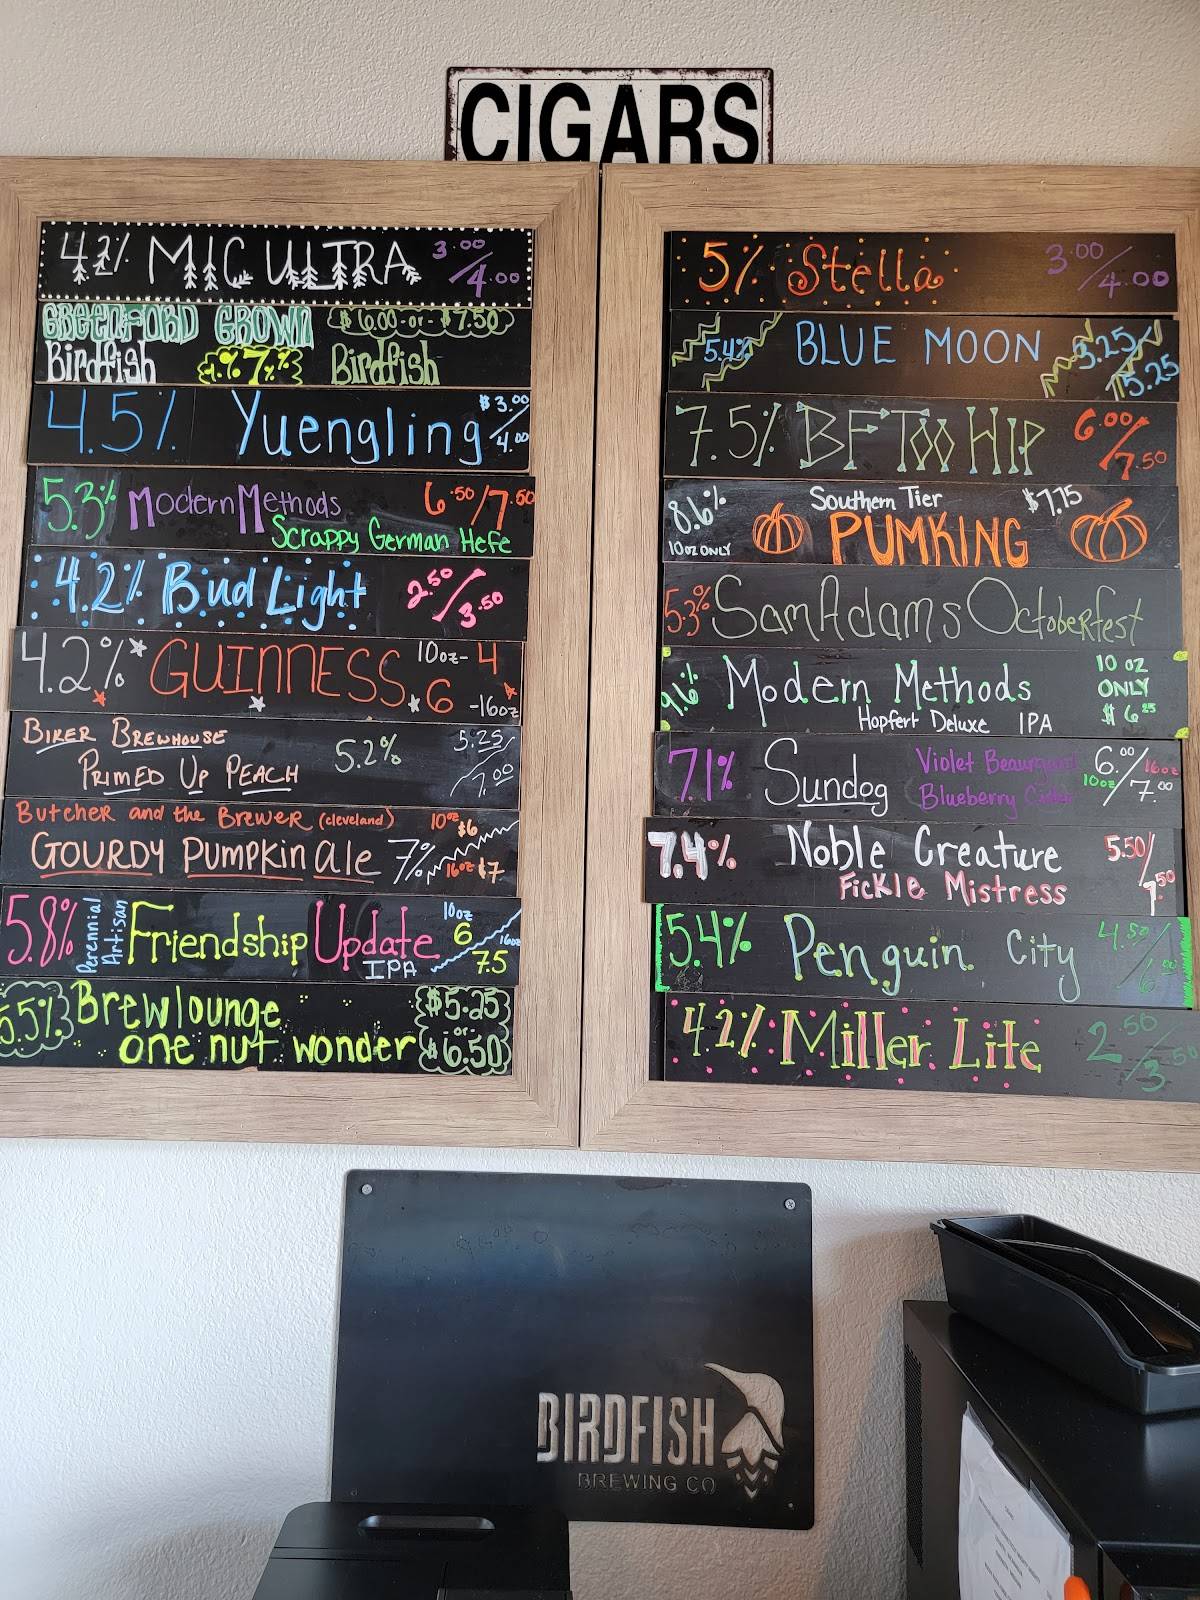 CIGARS
4.2% MIC ULTRA 3.00/4.00
GREENFORD GROWN $6.00-or-$7.50
Birdfish 7% Birdfish
4.5% Yuengling $3.00/4.00
5.3% Modern Methods 6.50/7.50
Scrappy German Hefe
4.2% Bud Light 2.50/3.50
4.2% GUINNESS 10oz- 4
6 -16oz
BIRER BREWHOUSE 5.2% 5.25/7.00
PRIMED UP PEACH
BUTCHER AND THE BREWER (cleveland) 10oz $6
GOURDY PUMPKIN ale 7% 16oz $7
5.8% Perennial Artisan Friendship Update 10oz 6
IPA 16oz 7.5
5.5% Brewlounge $5.25
-or-
one nut wonder $6.50
5% Stella 3.00/4.00
5.4% BLUE MOON 3.25/5.25
7.5% BF Too Hip 6.00/7.50
8.6% Southern Tier $7.75
10oz ONLY PUMKING
5.3% Sam Adams Octoberfest
9.6% Modern Methods 10 oz
ONLY
Hopfert Deluxe IPA $6.25
7.1% Sundog Violet Beauregard 6.00/16oz
Blueberry Cider 10oz 7.00
7.4% Noble Creature 5.50/
Fickle Mistress 7.50
5.4% Penguin City 4.50/6.00
4.2% Miller Lite 2.50/3.50
BIRDFISH
BREWING CO